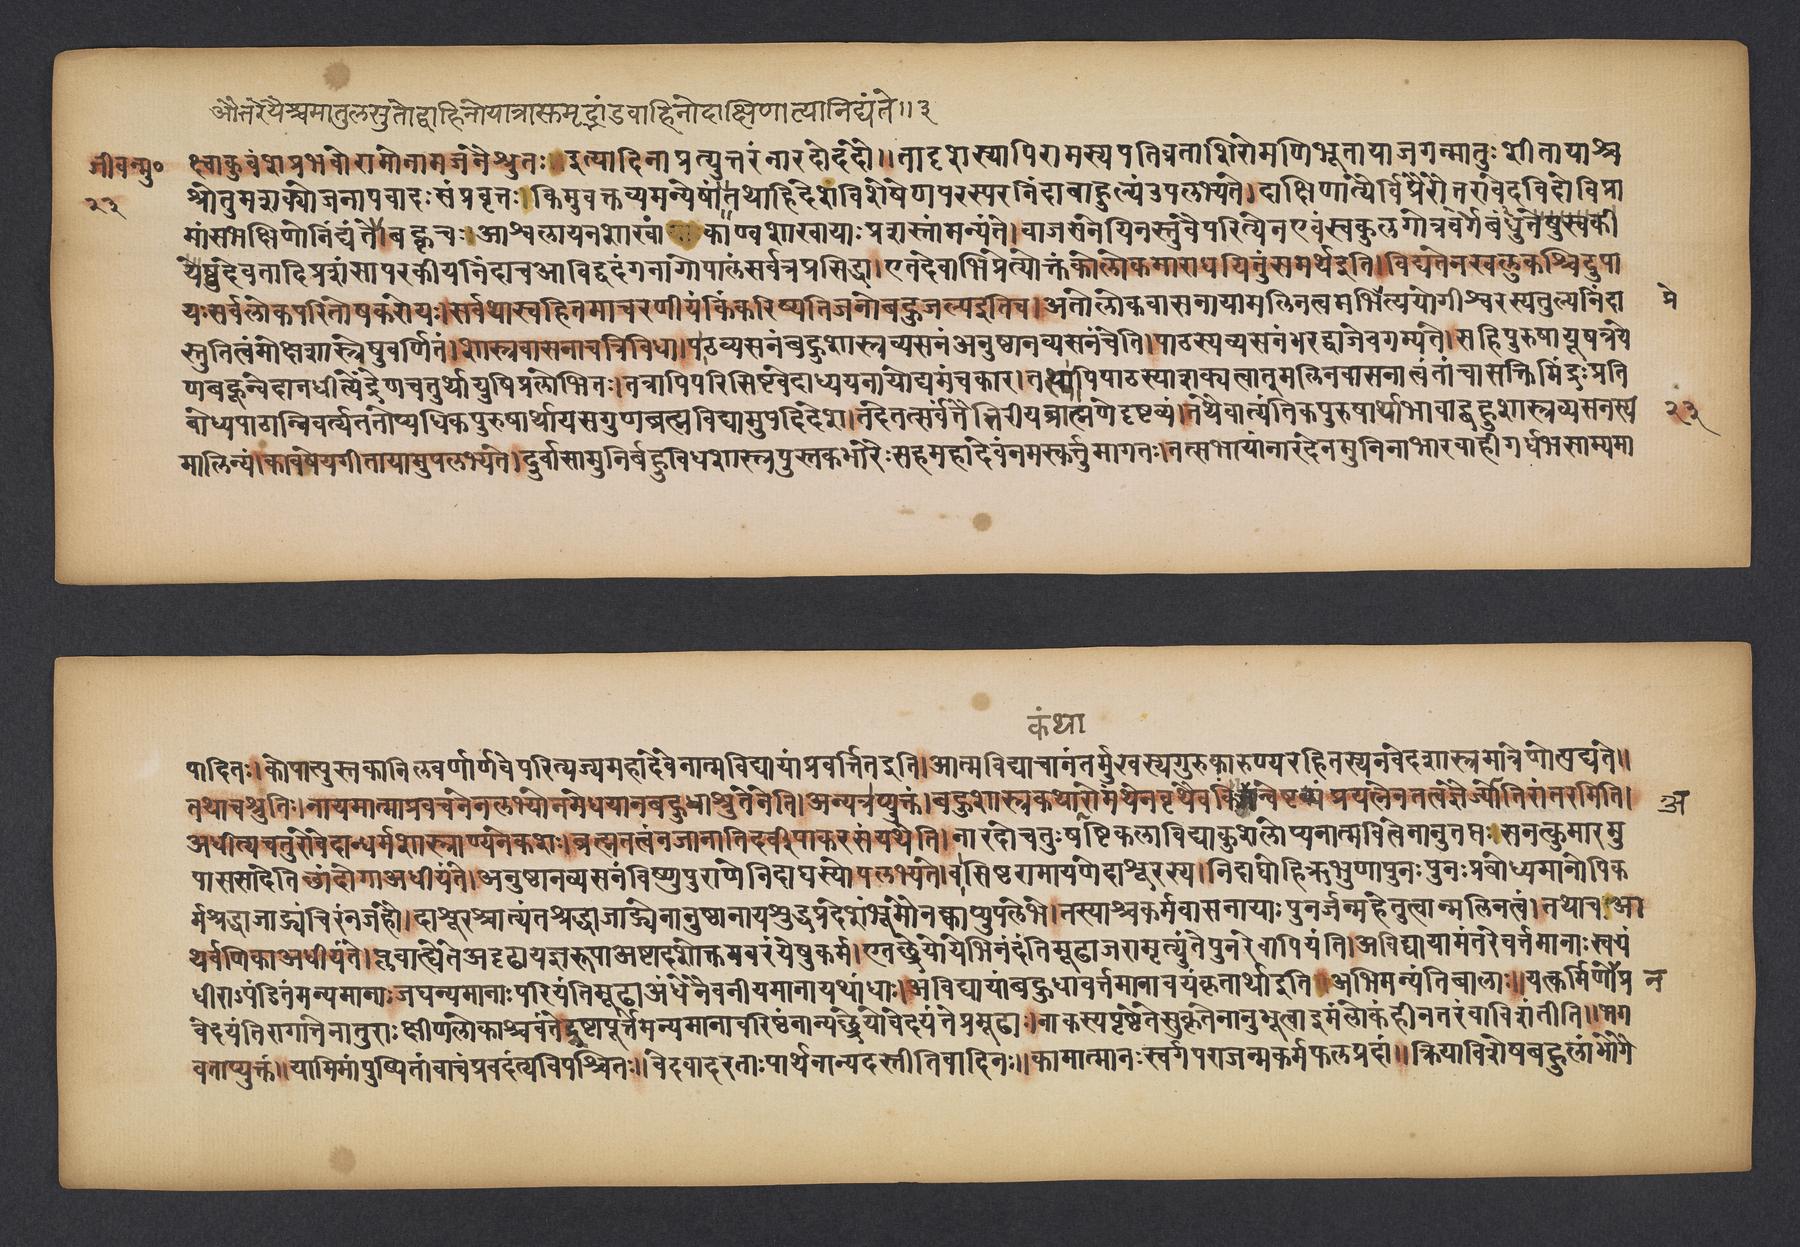 औत्तरेयैश्चमातुलसुतोद्वाहिनोयात्रासुमृद्भांडवाहिनोदाक्षिणात्यानिद्यंते॥३
जीवन्मु०
२३
क्ष्वाकुवंशप्रभवोरामोनामजनैश्रुतः॥इत्यादिनाप्रत्युत्तरंनारदोददौ॥तादृशस्यापिरामस्यपतिव्रताशिरोमणिभूतायाजगन्मातुःशीतायाश्च
श्रोतुमशक्योजनापवादःसंप्रवृत्तः।किमुवक्तव्यमन्येषांतथाहिदेशविशेषेणपरस्परनिंदाबाहुल्यंउपलभ्यते।दाक्षिणात्यैर्विप्रैरौत्तरावेदविदोविप्रा
मांसभक्षिणोनिंद्यंते।बह्वृचः।आश्वलायनशाखां काण्वशाखायाःप्रशस्तांमन्यंते।वाजसनेयिनस्तुवैपरित्येनएवंस्वकुलगोत्रवर्गबंधुनेषुस्वकी
येष्टुदेवतादिप्रशंसापरकीयनिंदाचआविद्वदंगनागोपालंसर्वत्रप्रसिद्धा।एतदेवाभिप्रेत्योक्तंकोलोकमाराधयितुंसमर्थइति।विद्यतेनखलुकश्चिदुपा
यःसर्वलोकपरितोषकरोयः।सर्वथास्वहितमाचरणीयंकिंकरिष्यतिजनोबहुजल्पइतिच।अतोलोकवासनायामलिनत्वमभित्ययोगीश्वरस्यतुल्यनिंदा
प्रे
स्तुतित्वंमोक्षशास्त्रेषुवर्णितं।शास्त्रवासनाचत्रिविधा।पठव्यसनंबहुशास्त्रव्यसनंअनुष्ठानव्यसनंचेति।पाठस्यव्यसनंभरद्वाजेवगम्यते।सहिपुरुषायूषत्रये
णबहून्वेदानधीत्येंद्रेणचतुर्थायुषिप्रलोभितः।तत्रापिपरिसिष्टवेदाध्ययनायोद्यमंचकार।तस्यापिपाठस्याशक्यत्वातुमलिनवासनात्वंतांचासक्तिमिंद्रःप्रति
बोध्यपाठान्निवर्त्यततोप्यधिकपुरुषार्थायसगुणब्रह्मविद्यामुपदिदेश।तदेतत्सर्वंतैत्तिरीयब्राह्मणेदृष्टव्यं।तथैवात्यंतिकपुरुषार्थाभावाद्बहुशास्त्रव्यसनस्य
२३
मालिन्यं।कावषेयगीतायामुपलभ्यते।दुर्वासामुनिर्बहुविधशास्त्रपुस्तकभारैःसहमहादेवंनमस्कर्त्तुमागतः।तत्सभायांनारदेनमुनिनाभारवाहीगर्धभसाम्यमा
कंथा
पादितः।कोपात्पुस्तकानिलवर्णार्णवेपरित्यज्यमहादेवेनात्मविद्यायांप्रवर्त्तितइति।आत्मविद्याचानंतर्मुखस्यगुरुकारुण्यरहितस्यनवेदशास्त्रमात्रेणोत्पद्यते॥
तथाचश्रुतिः।नायमात्माप्रवचनेनलभ्योनमेधयानबहुधाश्रुतेनेति।अन्यत्रप्युक्तं।बहुशास्त्रकथारोमंथेनवृथैवकिंअन्वेष्टव्यंप्रयत्नेनतत्वज्ञैर्ज्योतिरांतरमिति।
अ
अधीत्यचतुरोवेदान्धर्मशास्त्राण्यनेकशः।ब्रह्मतत्वंनजानातिदर्वीपाकरसंयथेति।नारदोचतुःषष्टिकलाविद्याकुशलोप्यनात्मवित्वेनानुतप्तःसनत्कुमारमु
पाससदितिछांदोगाअधीयंते।अनुष्ठानव्यसनंविष्णुपुराणेनिदाघस्योपलभ्यते।वसिष्टरामायणेदाशूरस्य।निदाघोहिऋभुणापुनःपुनःप्रबोध्यमानोपिक
र्मश्रद्धाजाड्यंचिरंनजहौ।दाशूरश्चात्यंतश्रद्धाजाड्येनानुष्ठानायशुद्धप्रदेशंभूमौनक्वाप्युपलेभे।तस्याश्चकर्मवासनायाःपुनर्जन्महेतुत्वान्मलिनत्वं।तथाच।आ
थर्वणिकाअधीयंते।प्लवाह्येतेअदृढायज्ञरूपाअष्टादशोक्तमवरंयेषुकर्म।एतच्छ्रेयोयेभिनंदंतिमूढाजरामृत्युंतेपुनरेवापियंति।अविद्यायामंतरेवर्त्तमानाःस्वयं
धीराऽपंडितंमन्यमानाःजघन्यमानाःपरियंतिमूढाअंधेनैवनीयमानायथांधाः।अविद्यायांबहुधावर्त्तमानावयंकृतार्थाइति॥अभिमन्यंतिबालाः॥यत्कर्मिणोप्र
न
वेदयंतिरागात्तेनातुराःक्षीणलोकाश्च्यवंतेइष्टापूर्त्तंमन्यमानावरिष्ठंनान्यच्छ्रेयोवेदयंतेप्रमूढाः।नाकस्यपृष्ठेतेसुकृतेनानुभूत्वाइमंलोकंहीनतरंवाविशंतीति॥भग
वताप्युक्तं॥यामिमांपुष्पितांवाचंप्रवदंत्यविपश्चितः॥वेदवादरताःपार्थनान्यदस्तीतिवादिनः॥कामात्मानःस्वर्गपराजन्मकर्मफलप्रदां॥क्रियाविशेषबहुलांभोगै